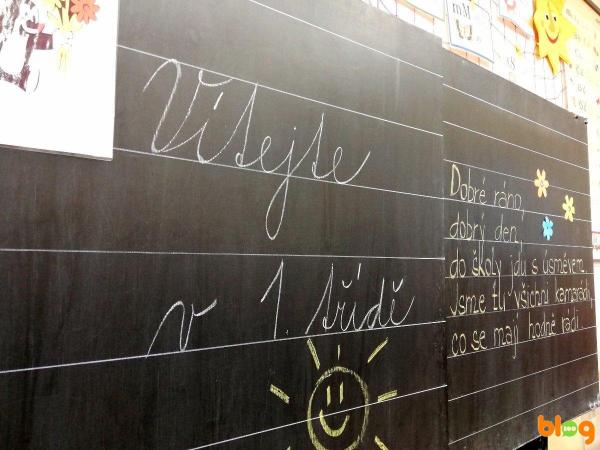 Vítejte
v 1. třídě
Dobré ráno,
dobrý den,
do školy jdu s úsměvem.
Jsme tu všichni kamarádi,
co se mají hodně rádi.
blog